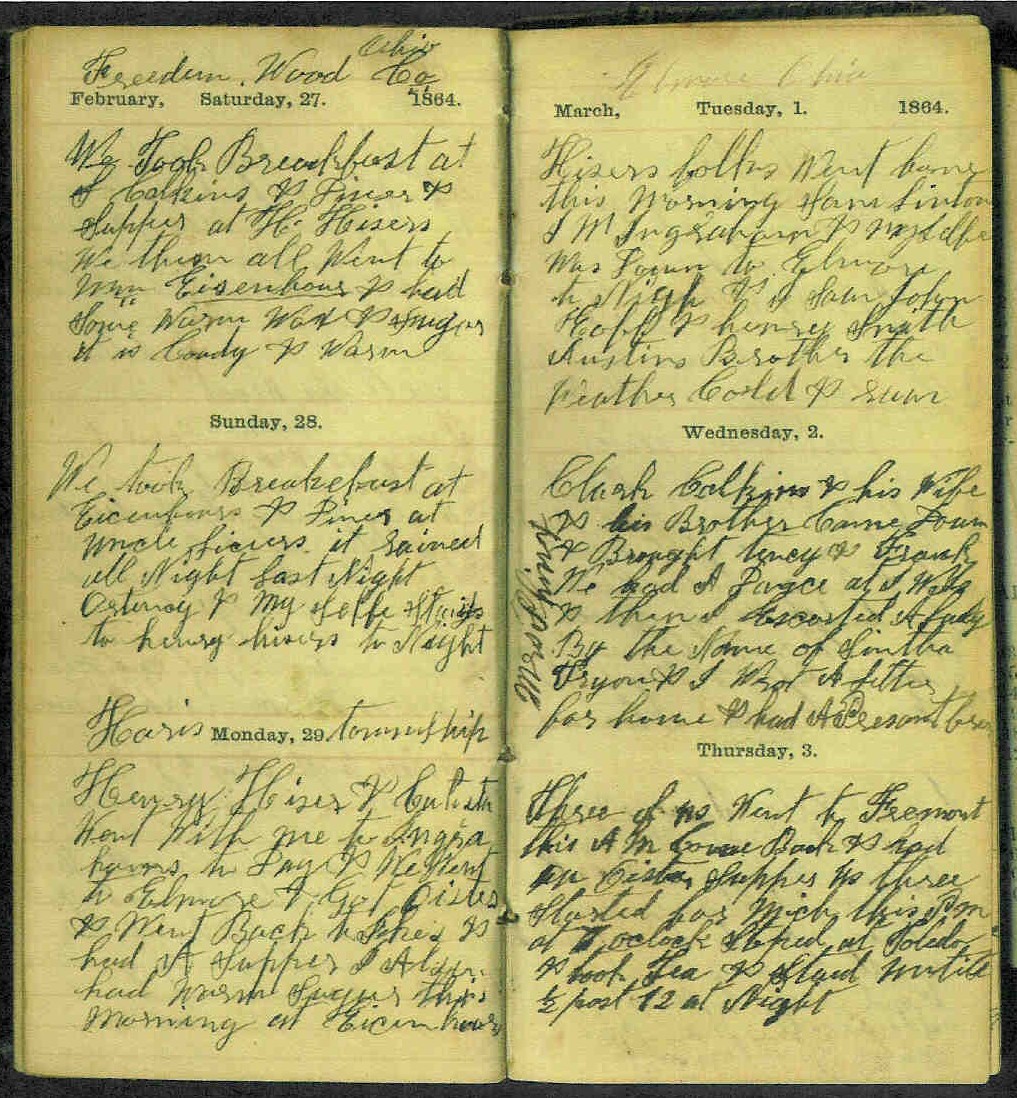 Ohio
Freedom. Wood Co,
February, Saturday, 27. 1864.
We Took Breakfast at
Calkins & Diner &
Supper at H. Hisers
We them all Went to
Wm Eisenhour & had
Some Warm Wax & Sugar
it is Coudy & Warm
Sunday, 28.
We took Breakefast at
Eicenhours & Diner at
Uncle it rained
all Night Last Night
& My Selfe Staid
to henry hisers to Night
Haris township
Monday, 29.
Henry Hiser &
Went With me to Ingra
hams to Day & We Went
to Elmore & Got Oisters
& Went Back to &
had A Supper I Also
had Warm Sugar this
Morning at Eicenhours
Elmore Ohio
March, Tuesday, 1. 1864.
Hisers folks Went home
this Morning Sam Linton
I M Ingraham & Myselfe
Was Down to Elmore
to Nigh & I Saw John
& henry Smith
Austins Brother the
Weather Cold &
Wednesday, 2.
Clark Calkins & his Wife
& his Brother Came Down
& Brought & Frank
We had A Dance at
& then I Escorted A Lady
By the Name of Sintha
Tryon & I Wrot A Letter
for home & had A Present from
Thursday, 3.
Three of us Went to Fremont
this A M Come Back & had
an Oister Supper us three
Started for Mich this P m
at 7 oclock Stoped at Toledo
& took Tea & Staid untill
½ past 12 at Night